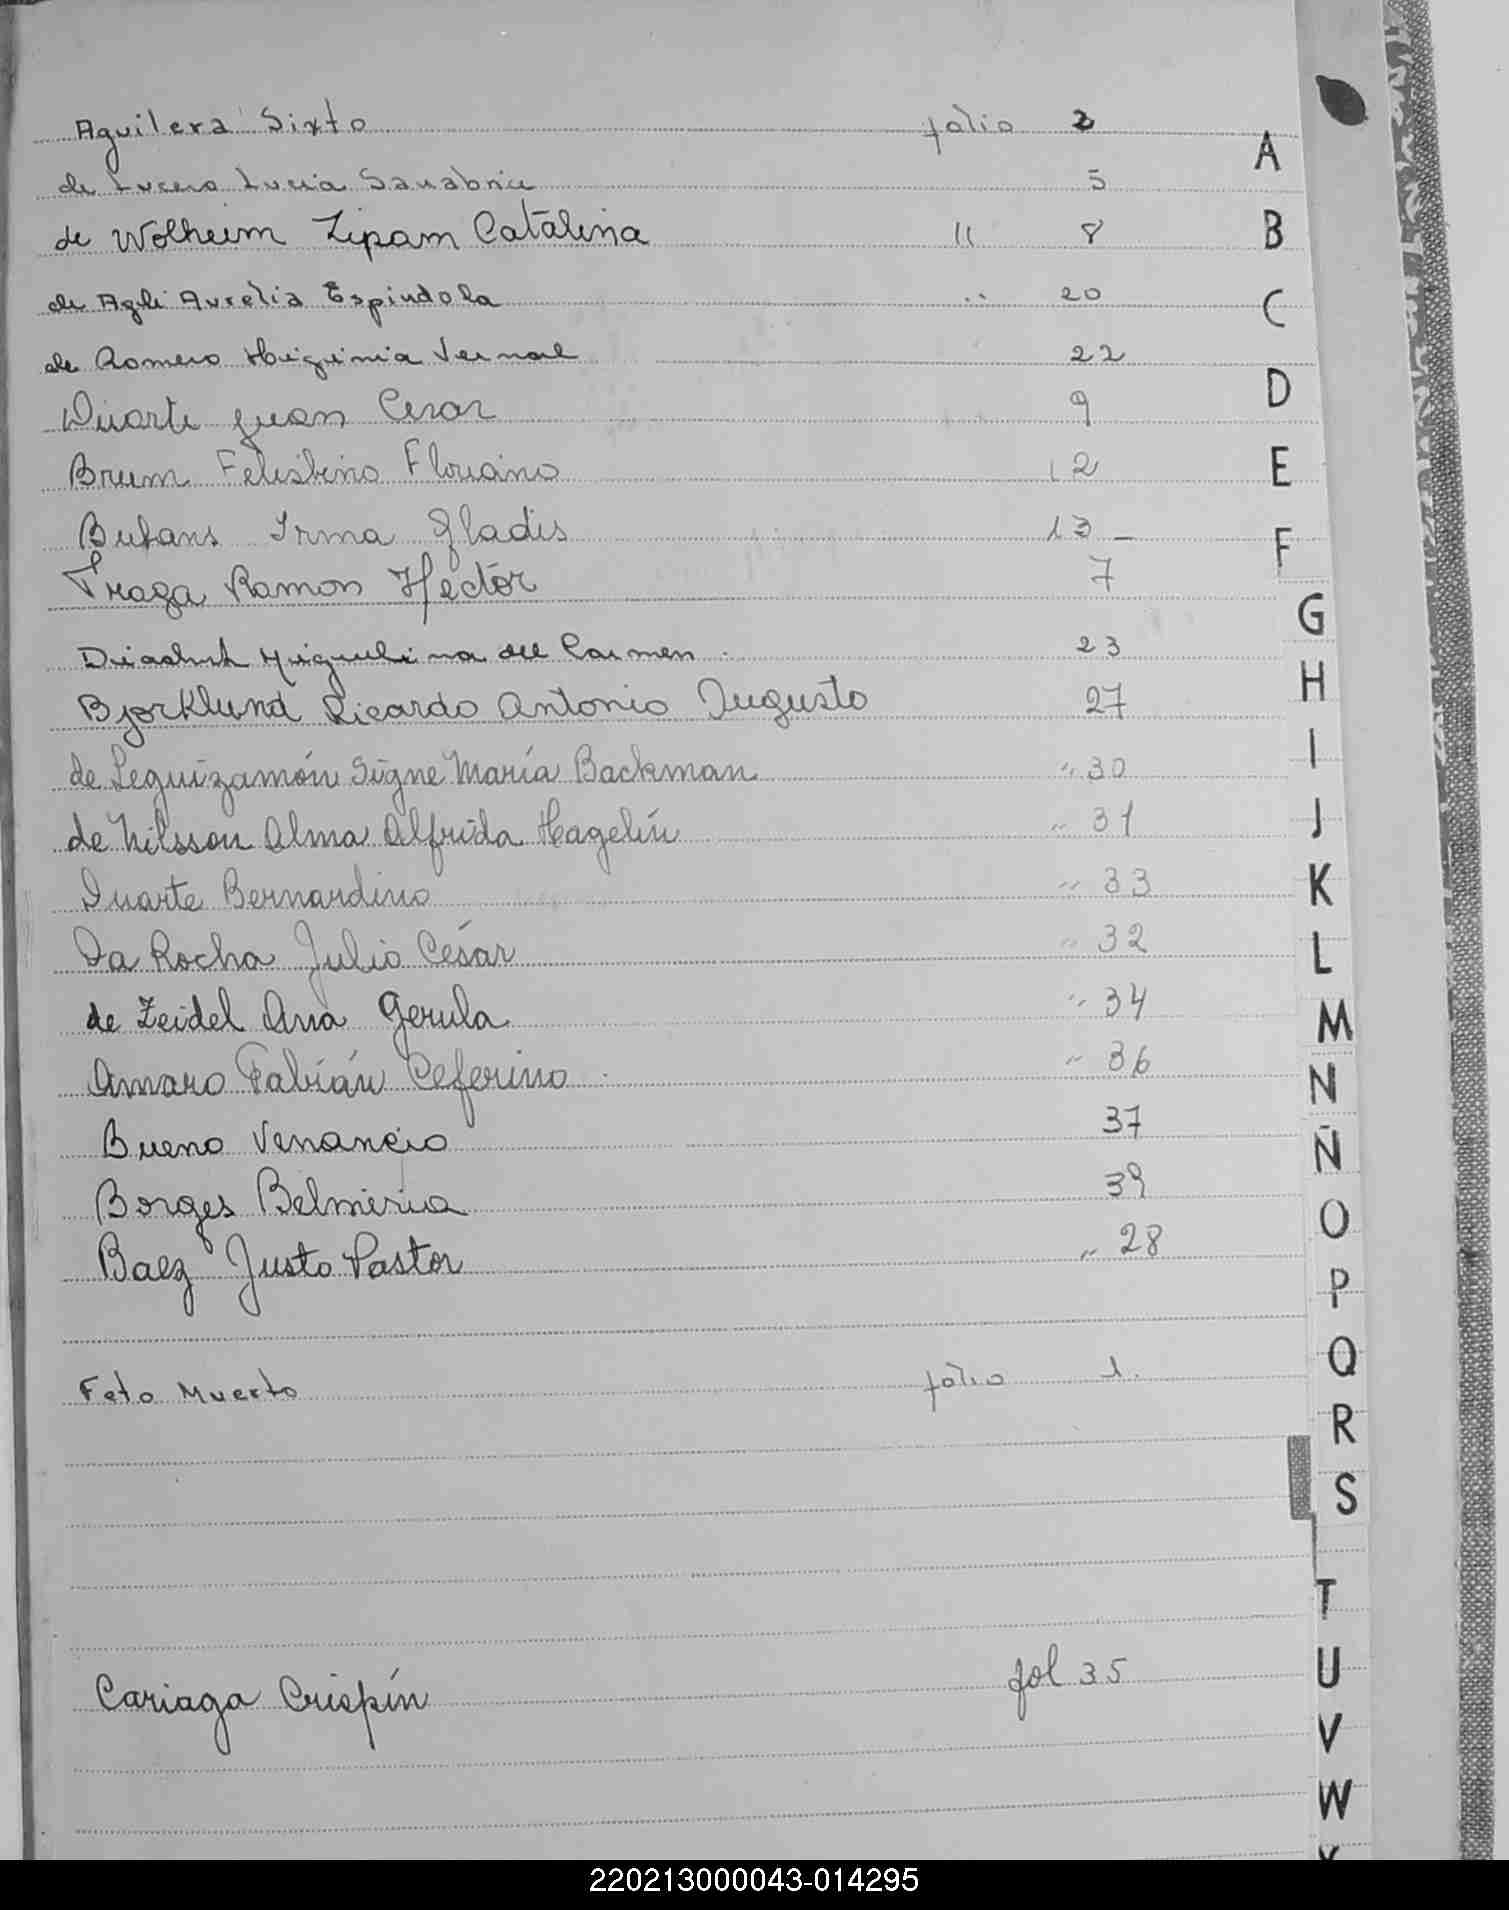 Aguilera Sixto folio 2
de Lucero Lucia Sanabria 5
de Wolheim Zipam Catalina " 8
de Agli Aurelia Espindola " 20
de Romero Higinia Vernal 22
Duarte Juan Cesar 9
Brum Felisbino Floriano 12
Butans Irma Gladis 13 -
Fraga Ramon Héctor 7
Miguelina del Carmen 23
Bjorklund Ricardo Antonio Augusto 27
de Leguizamón Signe María Backman " 30
de Nilsson Alma Alfrida Hagelín " 31
Duarte Bernardino " 33
Da Rocha Julio César " 32
de Zeidel Ana Gerula " 34
Amaro Fabián Ceferino " 36
Bueno Venancio 37
Borges Belmiria 39
Baez Justo Pastor " 28
Feto Muerto folio 1.
Cariaga Crispín fol 35
A
B
C
D
E
F
G
H
I
J
K
L
M
N
Ñ
O
P
Q
R
S
T
U
V
W
220213000043-014295